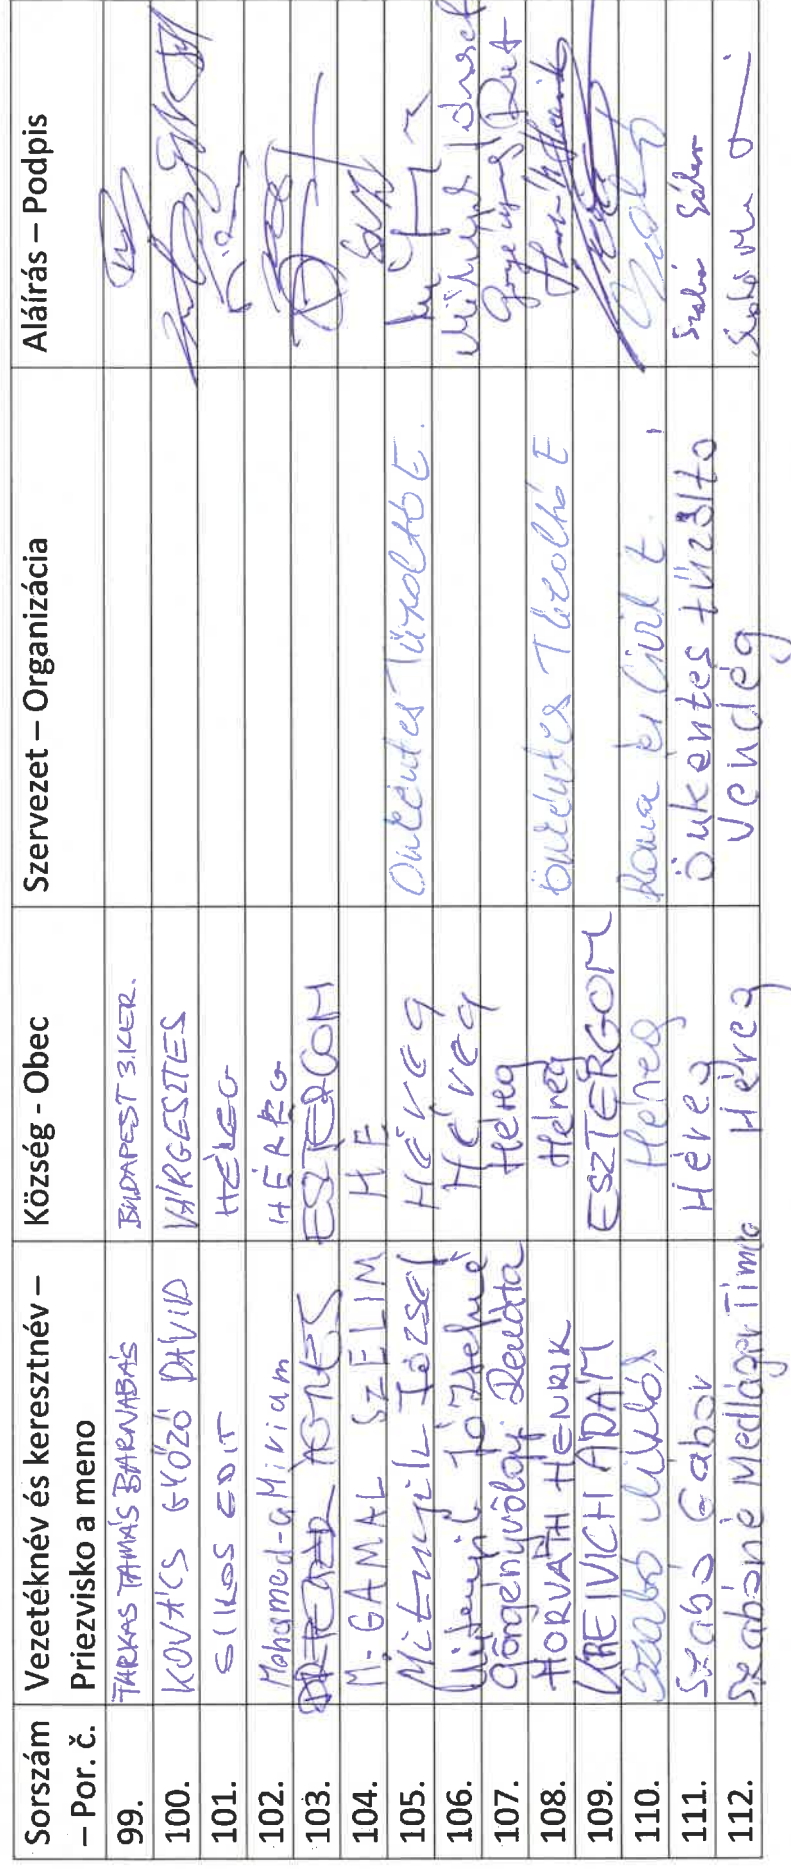 Sorszám – Por. č. Vezetéknév és keresztnév – Priezvisko a meno Község - Obec Szervezet – Organizácia Aláírás – Podpis
99. FARKAS TAMÁS BARNABÁS BUDAPEST 3.KER.
100. KOVÁCS GYŐZŐ DÁVID VÁRGESZTES
101. SIKOS EDIT HÉREG
102. Mohamed-a Miriam HÉREG
103. ÁGNES ESZTERGOM
104. M. GAMAL SZELIM HE
105. József Héreg Önkéntes Tűzoltó E.
106. Józsefné Héreg
107. Görgényvölgyi Renáta Héreg
108. HORVÁTH HENRIK Héreg Önkéntes Tűzoltó E
109. KREIVICH ÁDÁM ESZTERGOM
110. Szabó Miklós Héreg Roma és Civil E.
111. Szabó Gábor Héreg Önkéntes tűzoltó Szabó Gábor
112. Szabóné Medláger Tímea Héreg Vendég